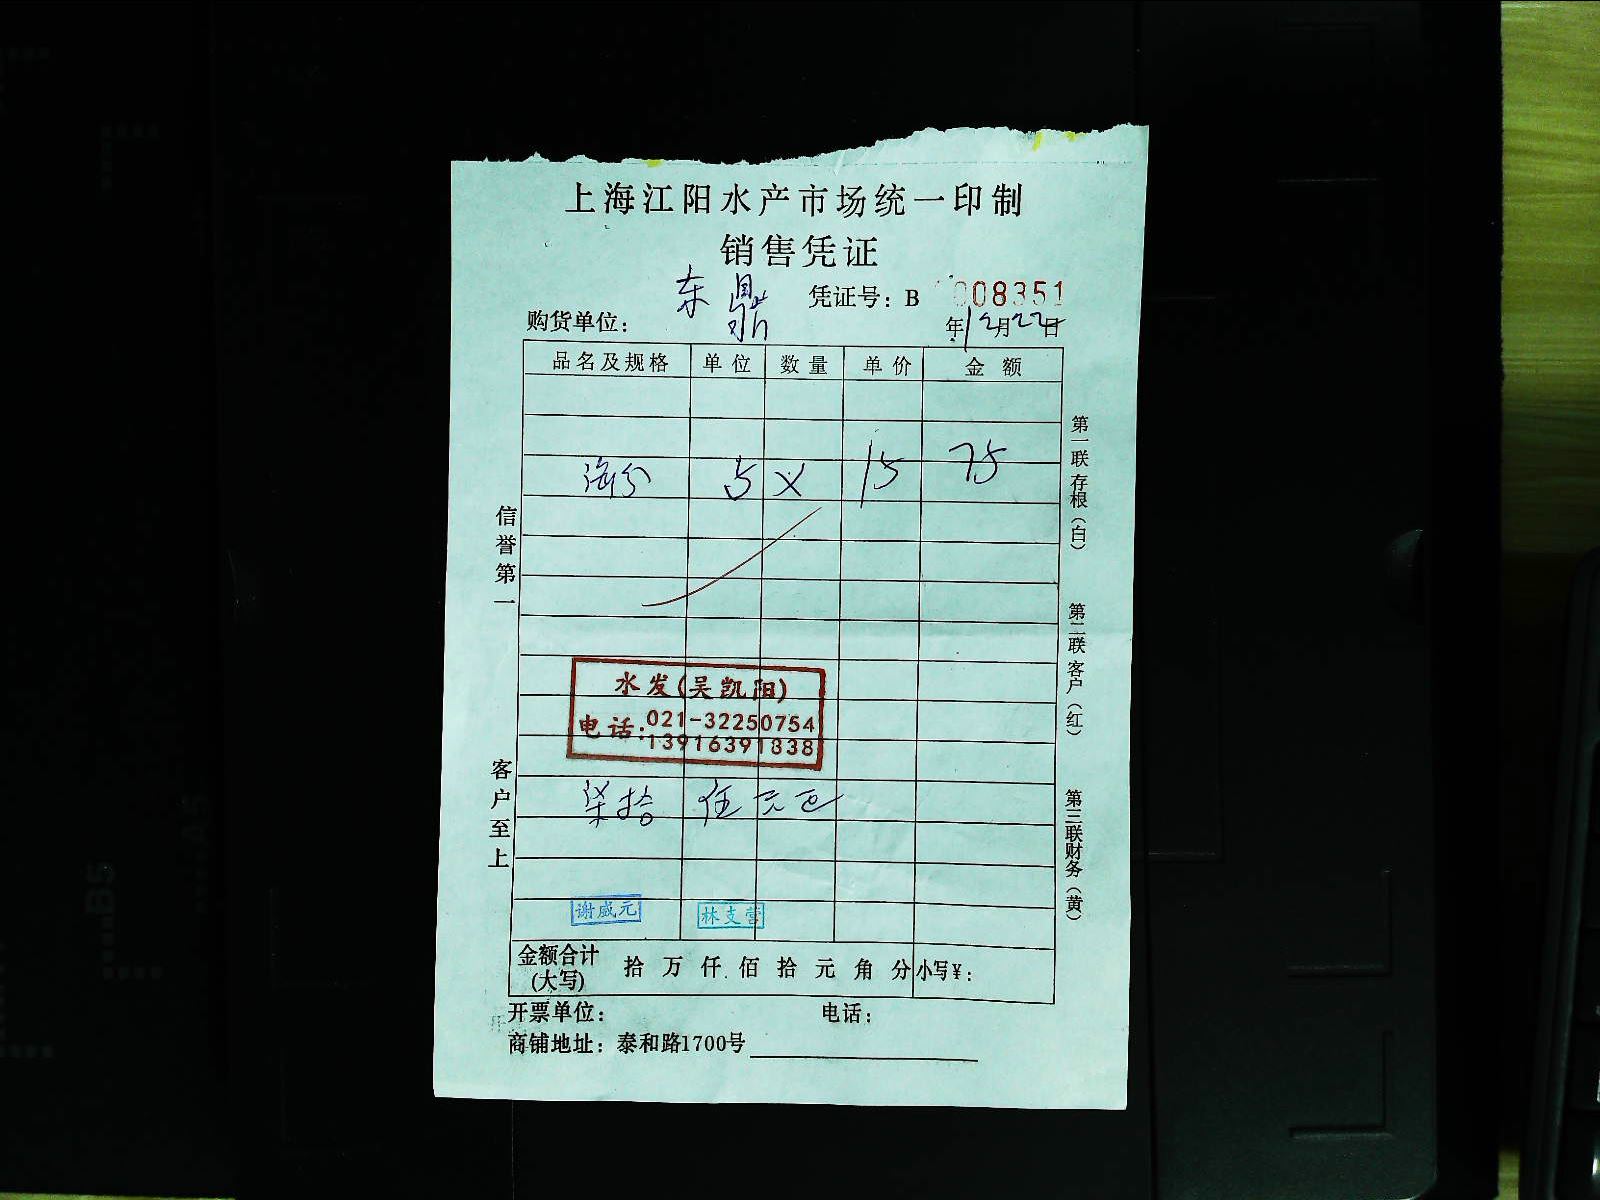 上海江阳水产市场统一印制
销售凭证
东鼎 凭证号：B 008351
购货单位： 年12月22日
品名及规格 单位 数量 单价 金额
5 15 75
信誉第一
客户至上
第一联存根（白）
第二联客户（红）
第三联财务（黄）
水发(吴凯阳)
电话:021-32250754
13916391838
柒拾伍元正
谢威元 林支营
金额合计(大写) 拾万仟佰拾元角分 小写￥：
开票单位： 电话：
商铺地址：泰和路1700号